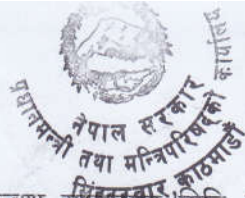 नेपाल सरकार
प्रधानमन्त्री तथा मन्त्रिपरिषद्को कार्यालय
सिंहदरबार काठमाडौं